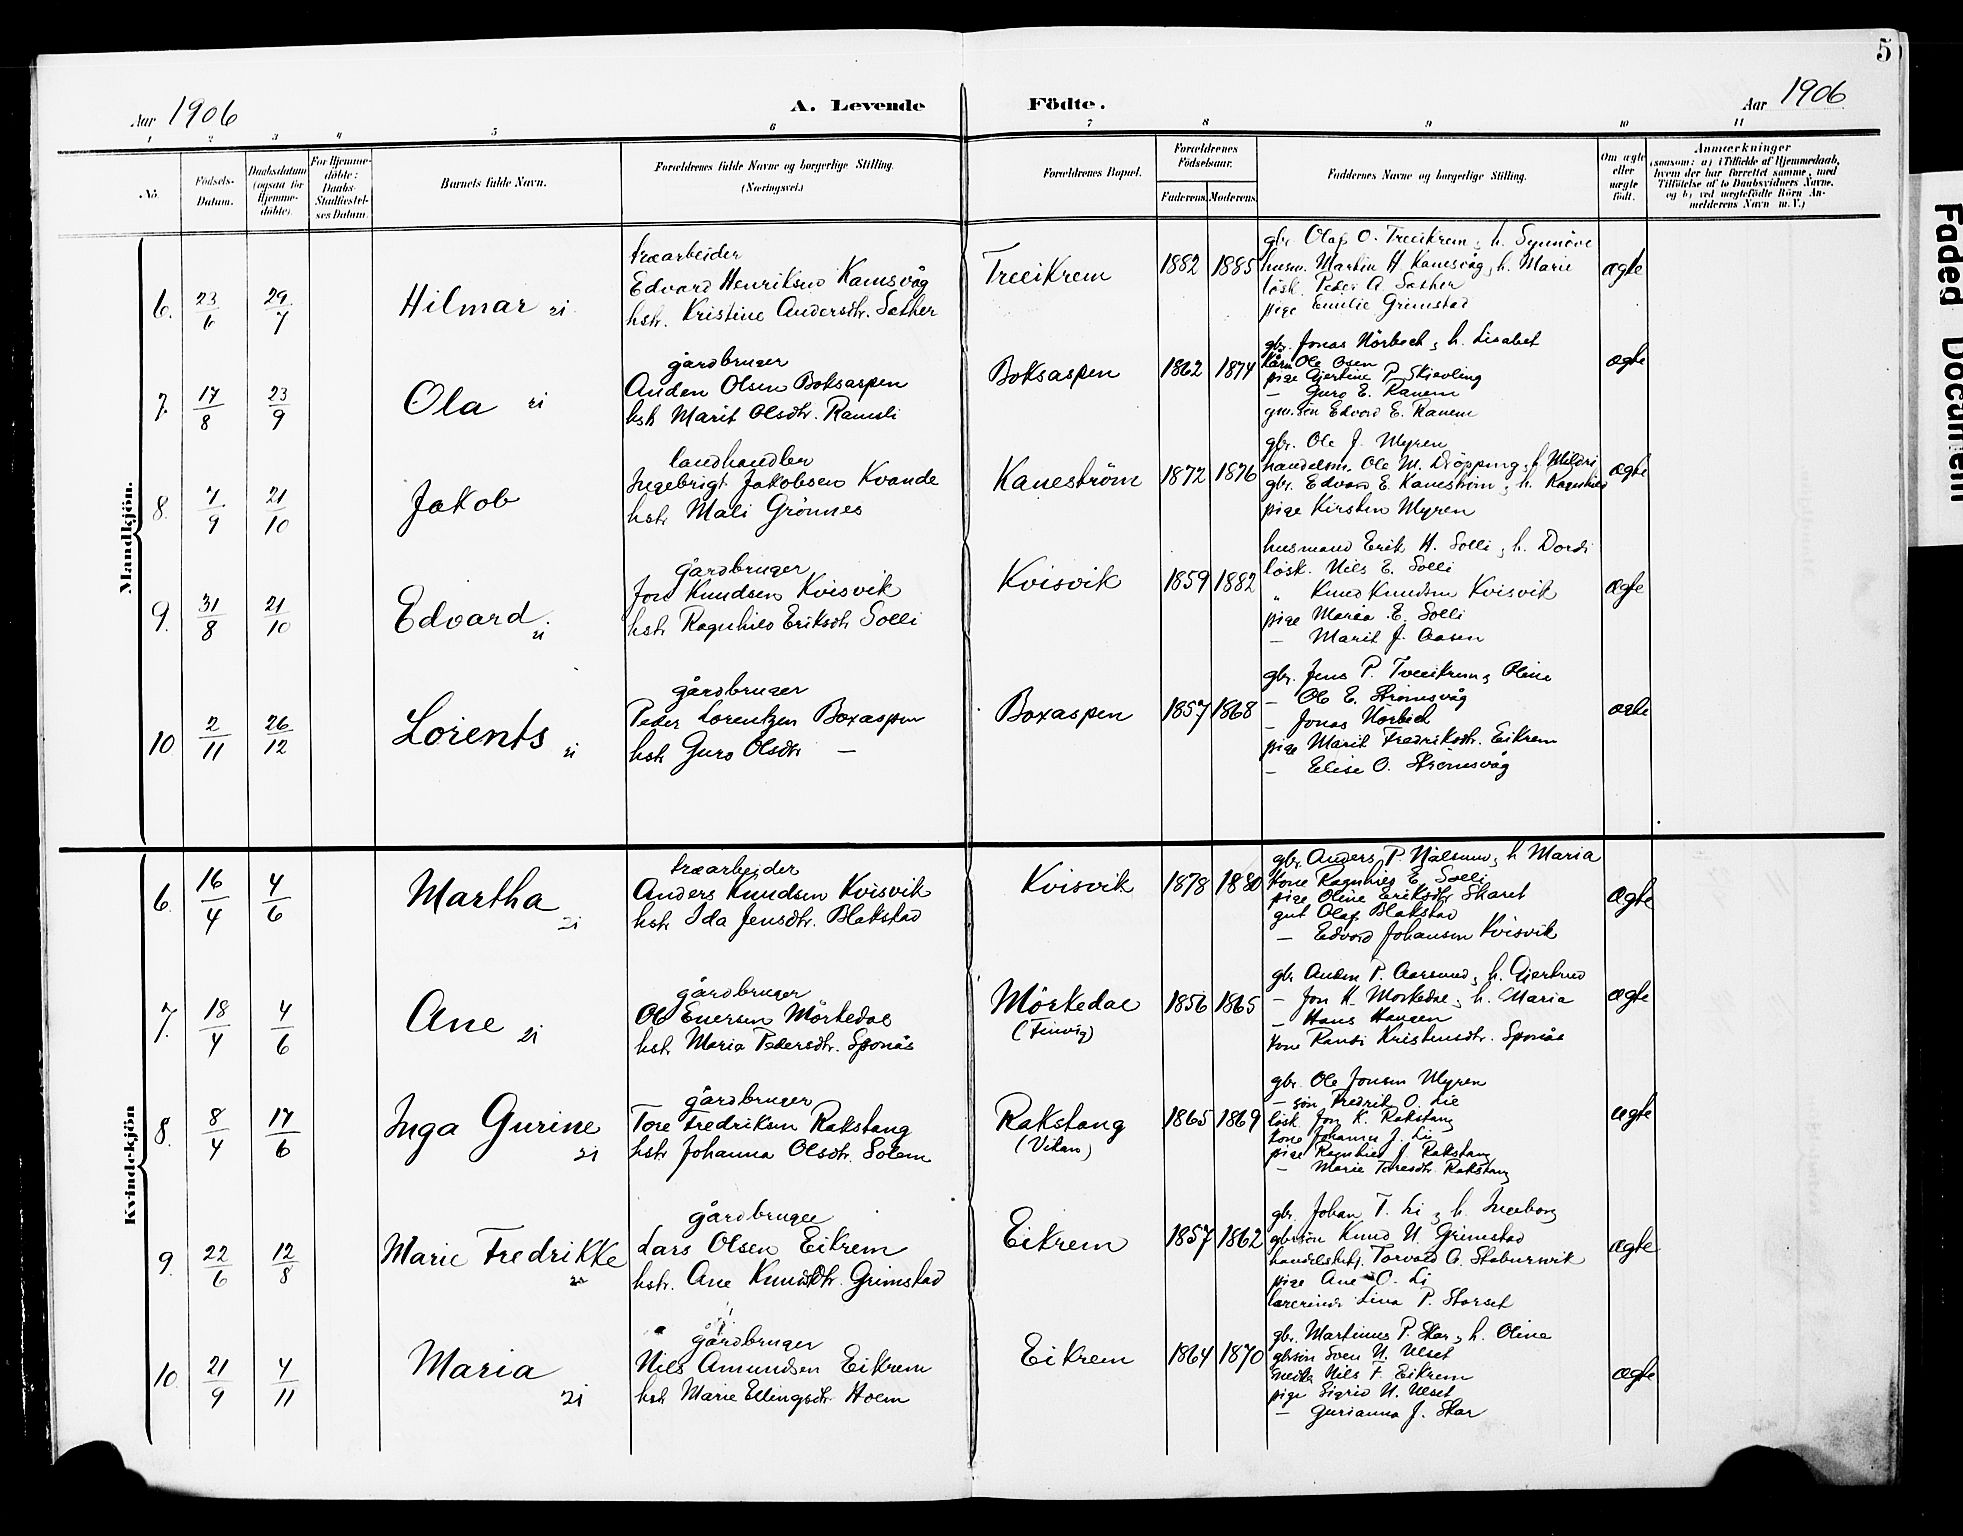 5
Aar 1906
A. Levende Födte.
Aar 1906
1 2 3 4 5 6 7 8 9 10 11
No.
Födsels-
Datum.
Daabsdatum
(ogsaa for
Hjemme-
döbte).
For Hjemme-
döbte:
Daabs-
Stadfæstel-
ses Datum.
Barnets fulde Navn.
Forældrenes fulde Navne og borgerlige Stilling.
(Næringsvei.)
Forældrenes Bopæl.
Forældrenes
Födselsaar.
Faderens. Moderens.
Faddernes Navne og borgerlige Stilling.
Om ægte
eller
uægte
födt.
Anmærkninger
(saasom: a) i Tilfælde af Hjemmedaab,
hvem der har forrettet samme, med
Tilföielse af to Daabsvidners Navne,
og b) ved uægtefödte Börn An-
melderens Navn m. V.)
Mandkjön.
6. 23/6 29/7
Hilmar
træarbeider
Edvard Henriksen Kamsvåg
hstr. Kristine Andersdtr. Sæther
Treeikrem
1882 1885
gbr. Olaf O. Treeikrem, h. Synnöve
husm. Martin H Kanesvåg, h. Marie
lösk. Peder A. Sæther
pige Emilie Grimstad
ægte
7. 17/8 23/9
Ola
gårdbruger
Anden Olsen Boksaspen
hstr Marit Olsdtr. Ramsli
Boksaspen
1862 1874
gbr. Jonas Nörbech, h. Lisabet
Kårm Ole Osen
pige Gjertine P. Skjevling
— Guro E. Ranem
gm. sön Edvard E. Ranem
ægte
8. 7/9 21/10
Jakob
landhandler
Ingebrigt Jakobsen Kvande
hstr Mali Grönnes
Kaneström
1872 1876
gbr. Ole J. Myren
handelsm. Ole M. Dröpping, h Mildri
gbr. Edvard E. Kaneström, h. Ragnhild
pige Kirsten Myren
ægte
9. 31/8 21/10
Edvard
gårdbruger
Jon Knudsen Kvisvik
hstr Ragnhild Eriksdtr Solli
Kvisvik
1859 1882
husmand Erik H. Solli, h. Dordi
lösk. Nils E. Solli
„ Knud Knudsen Kvisvik
pige Maria E. Solli
— Marit J. Aasen
ægte
10 2/11 26/12
Lorents
gårdbruger
Peder Lorentzen Boxaspen
hstr Guro Olsdtr —
Boxaspen
1857 1868
gbr. Jens P. Tveeikrem, Oline
— Ole E. Strömsvåg
— Jonas Nörbech
pige Marit Fredriksdtr. Eikrem
— Elise O. Strömsvåg
ægte
Kvindekjön
6. 16/4 4/6
Martha
træarbeider
Anders Knudsen Kvisvik
hstr Ida Jensdtr. Blakstad
Kvisvik
1878 1880
gbr. Anders P. Nålsund, h Maria
Kone Ragnhild E. Solli
pige Oline Eriksdtr Skaret
gut Olaf Blakstad
— Edvard Johansen Kvisvik
ægte
7. 18/4 4/6
Ane
gårdbruger
Ole Enersen Mörkedal
hstr Maria Pedersdtr. Sponås
Mörkedal
1856 1865
gbr Anden P. Aarsund, h. Gjertrud
— Jon K. Morkedal, h. Maria
— Hans Haugen
Kone Randi Kristensdtr. Sponås
ægte
8. 8/4 17/6
Inga Gurine
gårdbruger
Tore Fredriksen Rakstang
hstr Johanna Olsdtr. Solem
Rakstang
(Vikan)
1865 1869
gbr. Ole Jonsen Myren
— sön Fredrik O. Lie
lösk. Jon K. Rakstang
Kone Johanna J. Li
pige Ragnhild J. Rakstang
— Marie Toresdtr Rakstang
ægte
9. 22/6 12/8
Marie Fredrikke
gårdbruger
Lars Olsen Eikrem
hstr. Ane Knudsdtr. Grimstad
Eikrem
1857 1862
gbr. Johan T. Li, h. Ingeborg
gbrsön Knud N. Grimstad
handelsbetj. Torvald A. Staburvik
pige Ane O. Li
lærerinde Lina P. Storset
ægte
10 21/9 4/11
Maria
gårdbruger
Nils Amundsen Eikrem
hstr Marie Ellingsdtr Hoem
Eikrem
1864 1870
gbr. Martinus P. Skar, h. Oline
gbrsön Sven N. Ulset
Nils F. Eikrem
pige Sigrid N. Ulset
— Gurianna J. Skar
ægte
Faded Document